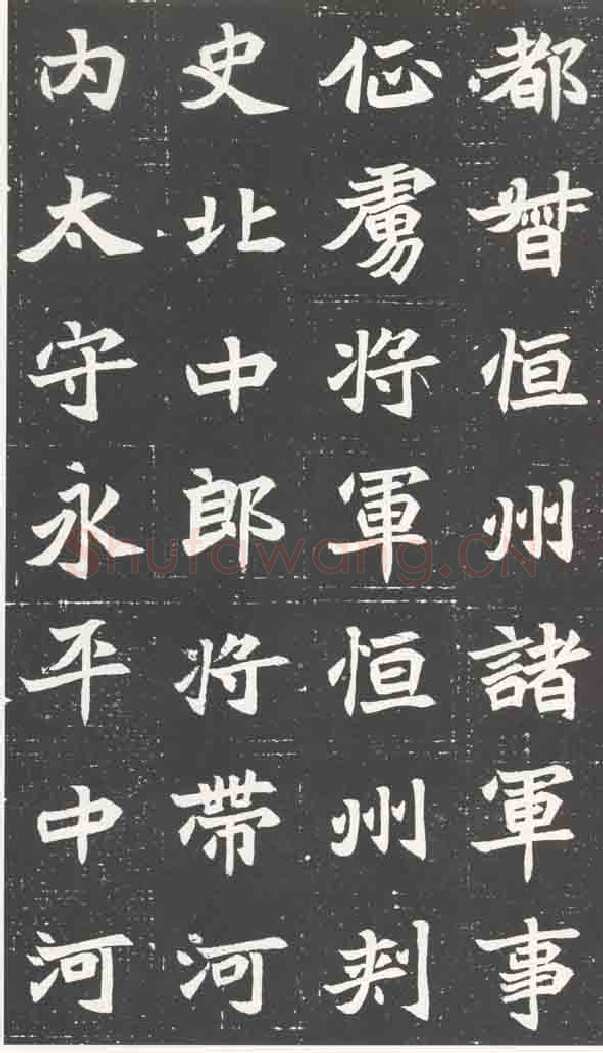 都督恒州諸軍事
征虜将軍恒州刾
史北中郎将帶河
内太守永平中河
Shufawang.CN